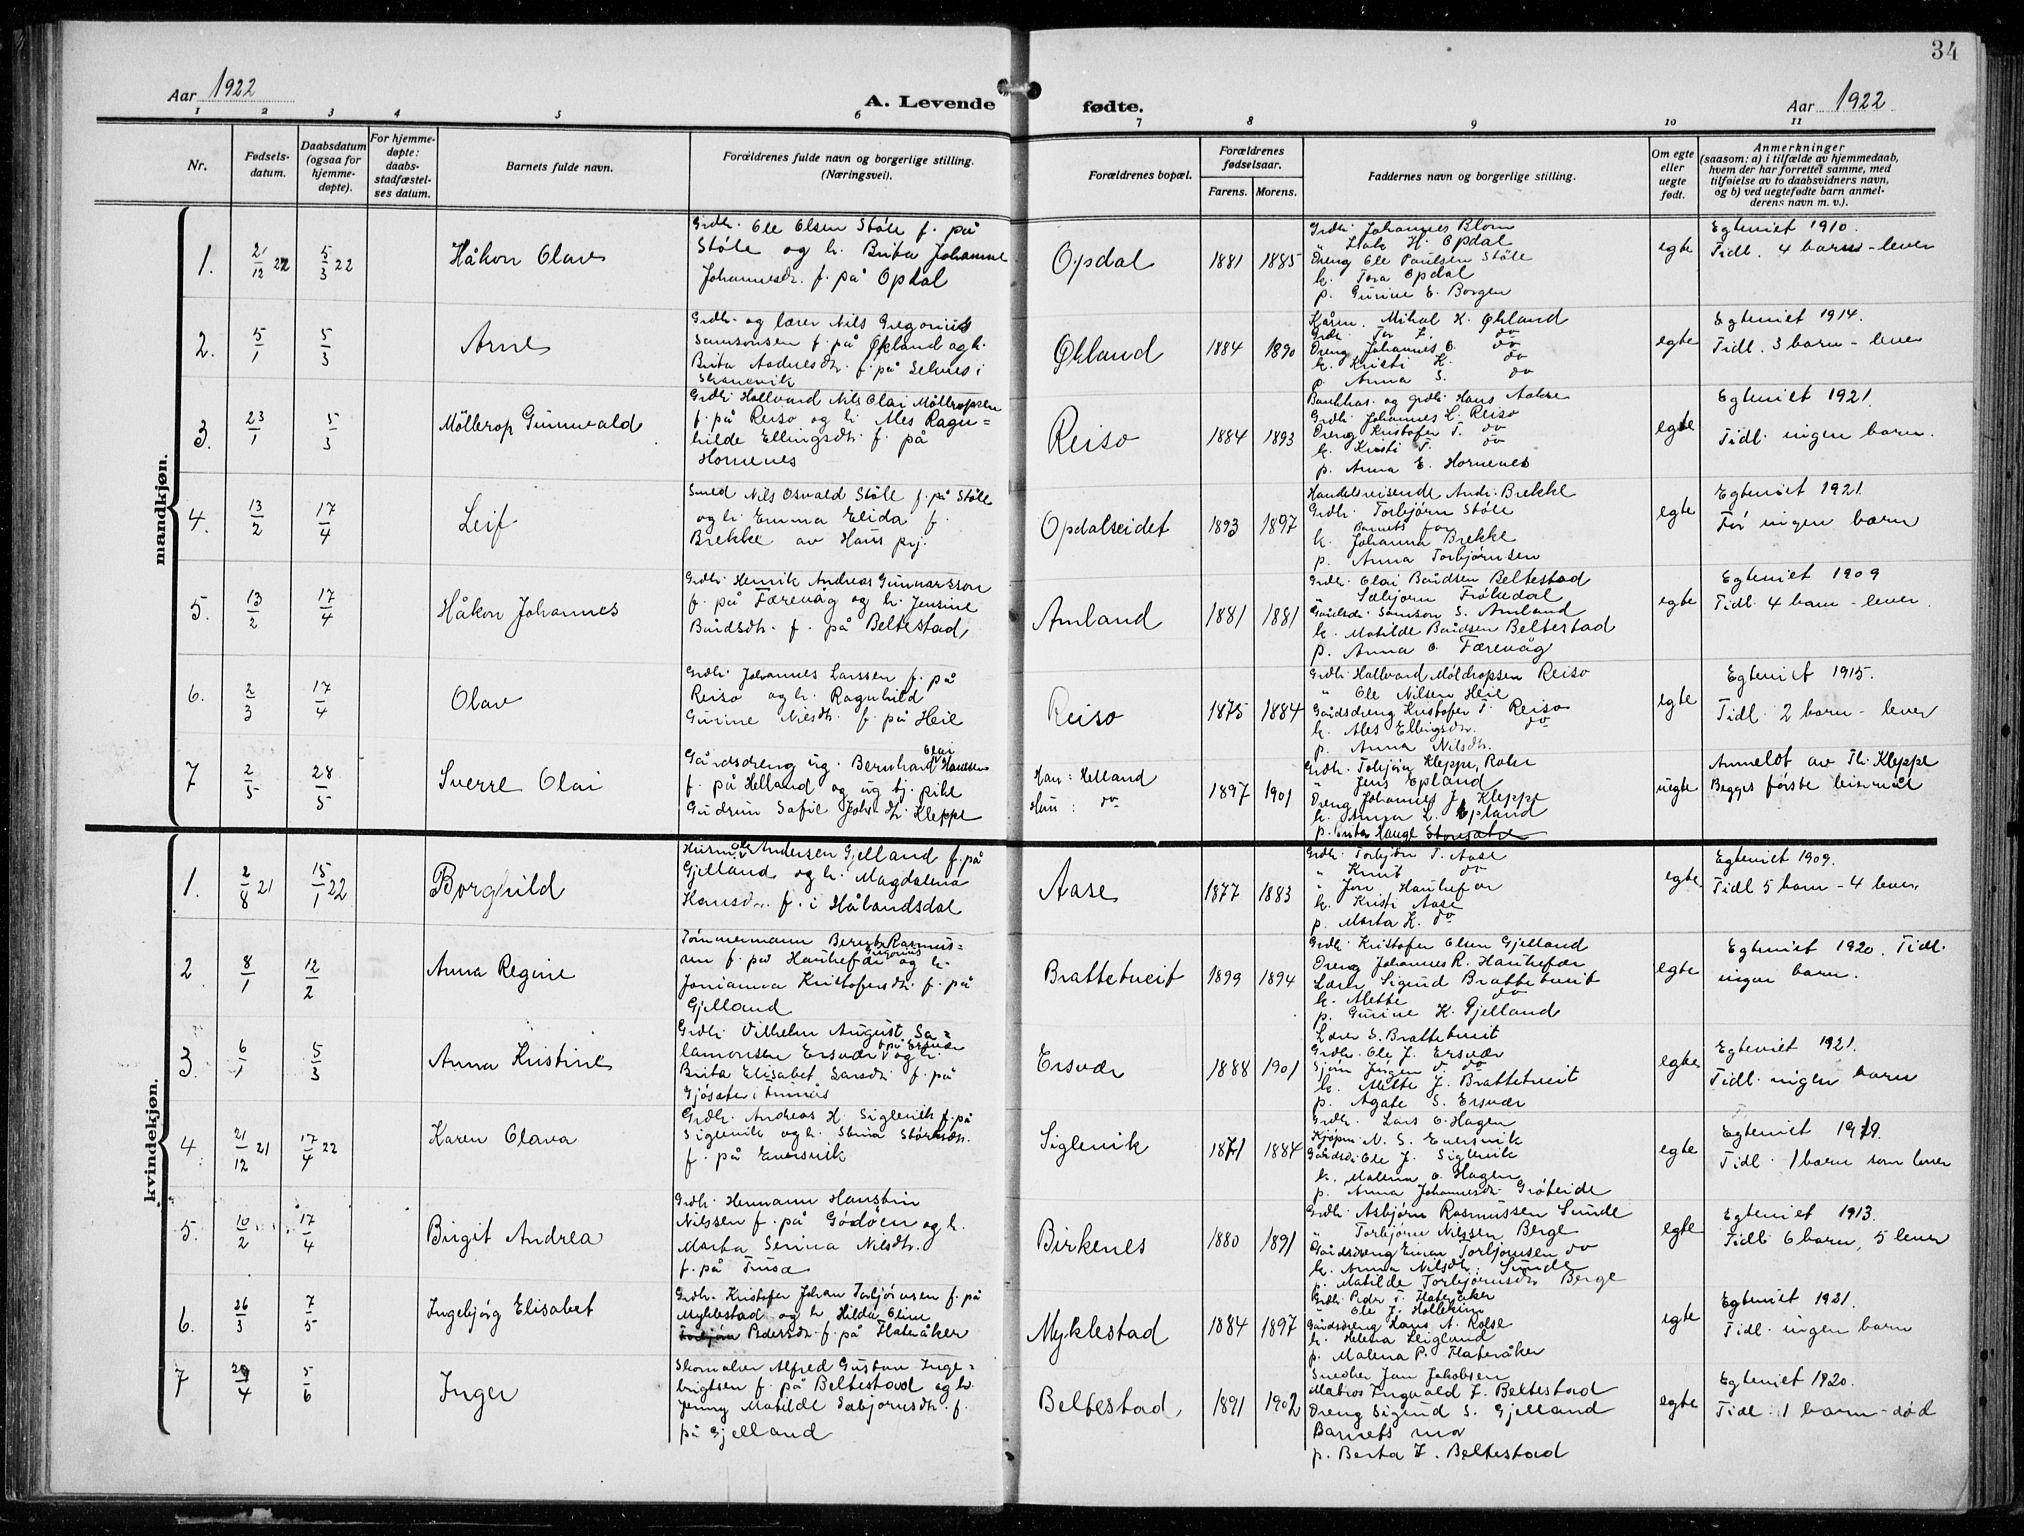 34
Aar 1922
A. Levende fødte.
Aar 1922
1 2 3 4 5 6 7 8 9 10 11
Nr.
Fødsels-
datum.
Daabsdatum
(ogsaa for
hjemme-
døpte).
For hjemme-
døpte:
daabs-
stadfæstel-
ses datum.
Barnets fulde navn.
Forældrenes fulde navn og borgerlige stilling.
(Næringsvei).
Forældrenes bopæl.
Forældrenes
fødselsaar.
Farens. Morens.
Faddernes navn og borgerlige stilling.
Om egte
eller
uegte
født.
Anmerkninger
(saasom: a) i tilfælde av hjemmedaab,
hvem der har forrettet samme, med
tilføielse av to daabsvidners navn,
og b) ved uegtefødte barn anmel-
derens navn m. v.).
mandkjøn.
1.
21/12 22
5/3 22
Håkon Olav
Grdbr. Ole Olsen Støle f. på
Støle og h. Brita Johanne
Johannesdtr. f. på Opdal
Opdal
1881 1885
Grdbr. Johannes Blom
" H. Opdal
Dreng Ole Paulsen Støle
k. Tora Opdal
p. Gurine E. Borgen
egte
Egteviet 1910.
Tidl. 4 barn - lever
2.
5/1
5/3
Arne
Grdbr. og lærer Nils Gregorius
Samsonsen f. på Økland og h.
Brita Andresdtr. f. på Selnes i
Skånevik
Økland
1884 1890
Kårm. Mikal K. Økland
Grdbr. Tor L. do
Dreng Johannes O. do
k. Kristi K. do
p. Anna S. do
egte
Egteviet 1914.
Tidl. 3 barn - lever
3.
23/1
5/3
Möllerop Gunnvald
Grdbr. Hallvard Nils Olai Möllropsen
f. på Reisø og h. Ales Ragn=
hilde Ellingsdtr. f. på
Hornenes
Reisø
1884 1893
Bankkas. og grdbr. Hans Aakre
Grdbr. Johannes L. Reisø
Dreng Kristofer T. do
k. Kristi T. do
p. Anna E. Hornenes
egte
Egteviet 1921.
Tidl. ingen barn.
4.
13/2
17/4
Leif
Smed Nils Osvald Støle f. på Støle
og h. Emma Elida f.
Brekke av Haus prj.
Opdalseidet
1893 1897
Handelsreisende Andr. Brekke
Grdbr. Torbjørn Støle
Barnets far
k. Johanna Brekke
p. Anna Torbjørnsen
egte
Egteviet 1921.
Før ingen barn
5.
13/2
17/4
Håkon Johannes
Grdbr. Henrik Andreas Gunnarsson
f. på Færevåg og h. Jensine
Bårdsdtr. f. på Beltestad
Amland
1881 1881
Grdbr. Olai Bårdsen Beltestad
" Sæbjørn Frøkedal
Gårdsdr. Samson S. Amland
k. Matilde Bårdsen Beltestad
p. Anna O. Færevåg
egte
Egteviet 1909
Tidl. 4 barn - lever.
6.
2/3
17/4
Olav
Grdbr. Johannes Larssen f. på
Reisø og h. Ragnhild
Gurine Nilsdtr. f. på Heie
Reisø
1875 1884
Grdbr. Hallvard Möldropsen Reisø
" Ole Nilsen Heie
Gårdsdreng Kristofer T. Reisø
k. Ales Ellingsdtr. do
p. Anna Nilsdtr.
egte
Egteviet 1915.
Tidl. 2 barn - lever
7
2/5
28/5
Sverre Olai
Gårdsdreng ug. Bernhard Olai Hanssen
f. på Helland og ug. tj. pike
Gudrun Sofie Johsdtr. Kleppe
Han: Helland
Hun: do
1897 1901
Grdbr. Torbjörn Kleppe,
" Jens Epland
Dreng Johannes J. Kleppe
k. Anna L. Epland
p. Hauge
uegte
Anmeldt av Th. Kleppe
Begges første leiermål
kvindekjøn.
1.
2/8 21
15/1 22
Borghild
Andersen Gjelland f. på
Gjelland og h. Magdalena
Hansdtr. f. i Hålandsdal
Aase
1877 1883
Grdbr. Torbjörn T. Aase
" Knut do
" Jon Haukefær
k. Kristi Aase
p. Marta K. do
egte
Egteviet 1909.
Tidl 5 barn - 4 lever.
2.
8/1
12/2
Anna Regine
Tømmermann Gregorius Rasmus=
sen f. på Haukefær og h.
Jonianna Kristofersdtr. f. på
Gjelland
Brattetveit
1899 1894
Grdbr. Kristofer Olsen Gjelland
Dreng Johannes R. Haukefær
Lærer Sigurd Brattetveit
k. Mette do
p. Gurine K. Gjelland
egte
Egteviet 1920. Tidl.
ingen barn.
3.
6/1
5/3
Anna Kristine
Grdbr. Vilhelm August Sa=
lamonsen Ersvær f. på Ersvær og h.
Brita Elisabet Larsdtr. f. på
Gjøsæter i Finnås
Ersvær
1888 1901
Lærer S. Brattetveit
Grdbr. Ole J. Ersvær
do
k. Mette J. Brattetveit
p. Agate S. Ersvær
egte
Egteviet 1921.
Tidl. ingen barn
4
21/12 21
17/4 22
Karen Olava
Grdbr. Andreas H. Siglevik f. på
Siglevik og h. Størksdtr.
f. på Eversvik
Siglevik
1871 1884
Grdbr. Lars O. Hagen
Kjøpm. N. S. Eversvik
Gårdsdr. Ole J. Siglevik
k. Malena O. Hagen
p. Anna Johannesdtr. Grøteide
egte
Egteviet 1919.
Tidl. 1 barn som lever
5.
10/2
17/4
Birgit Andrea
Grdbr. Hermann Hanstein
Nilssen f. på Godöen og h.
Marta Serina Nilsdtr.
f. på Fusa
Birkenes
1880 1891
Grdbr. Asbjörn Rasmussen Sunde
" Torbjörn Nilssen Berge
Gårdsdreng Einar Torbjörnsen do
k. Anna Nilsdtr. Sunde
p. Matilde Torbjörnsdtr. Berge
egte
Egteviet 1913.
Tidl. 6 barn, 5 lever
6.
26/3
7/5
Ingebjørg Elisabet
Grdbr. Kristofer Johan Torbjörnsen f. på
Myklestad og h. Hilda Oline
Pedersdtr. f. på Flateråker
Myklestad
1884 1897
Grdbr. Peder T. Flateråker
" Ole J. Hollekim
Gårdsdreng Hans A. Rolse
k. Helena Leiglund
p. Malena P. Flateråker
egte
Egteviet 1921.
Tidl. ingen barn
7
29/4
5/6
Inger
Skomaker Alfred Gustav Inge=
brigtsen f. på Beltestad og h.
Jenny Matilde Sæbjørnsdtr. f.
på Gjelland
Beltestad
1891 1902
Snedker Jan Jakobsen
Matros Ingvald J. Beltestad
Dreng Sigurd S. Gjelland
Barnets mor
p. Berta J. Beltestad
egte
Egteviet 1920.
Tidl. 1 barn - død